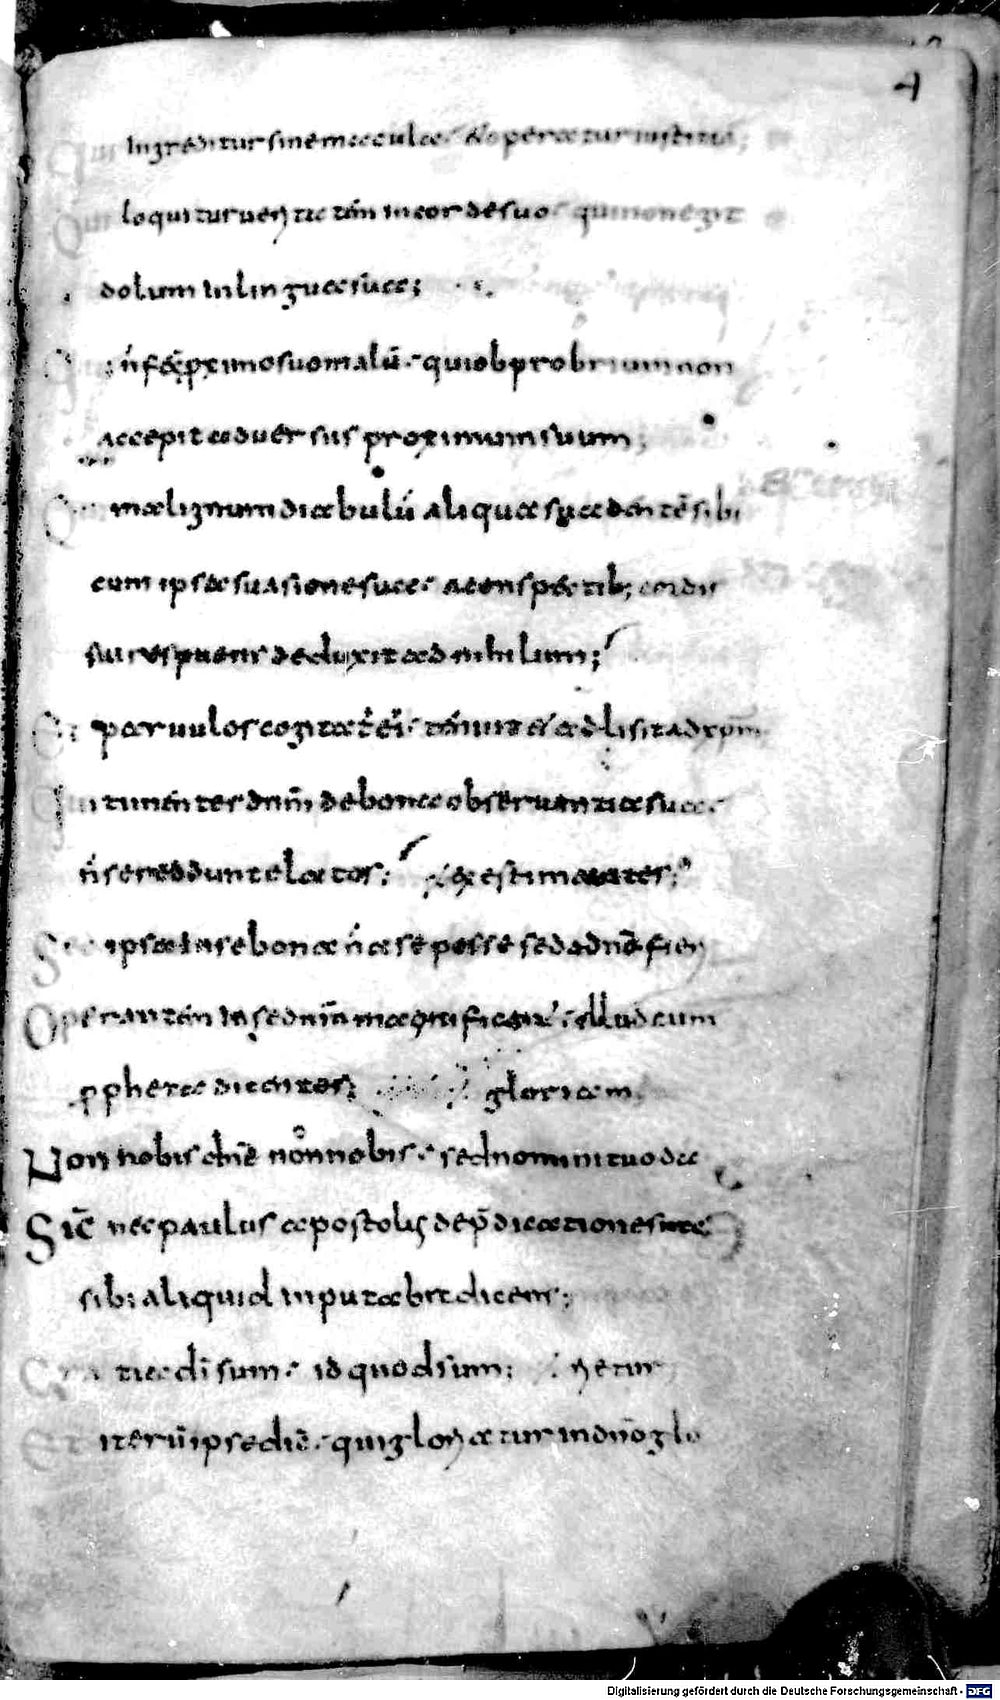 4
Qui Ingreditur sine macula · & operatur iustitia;
Qui loquitur ueritatem in corde suo · qui non egit
dolum In lingua sua;
Qui n̄ fec̄ pximo suo malū · qui obprobrium non
accepit aduersus proximum suum;
malignum diabulū aliqua suadentē sibi
cum ipsa suasione sua · a conspectib; cordis
sui respuens deduxit ad nihilum;
Et paruulos cogitat eī · tenuit et adlisit ad xpm
Qui timentes dnm̄ de bona obseruantia sua ·
n̄ se reddunt elatos; existimantes;
Sed ipsa In se bona n̄ a se posse sed a dnō fieri
Operantem In se dnm̄ magnificant; illud cum
ppheta dicentes; gloriam
Non nobis dnē non nobis · sed nomini tuo da
Sic̄ nec paulus apostolus de p̄dicatione sua
sibi aliquid inputabit dicens;
Gratia dī sum · id quod sum;
Et iterū ipse dic̄ · qui gloriatur in dnō glo
Digitalisierung gefördert durch die Deutsche Forschungsgemeinschaft - DFG